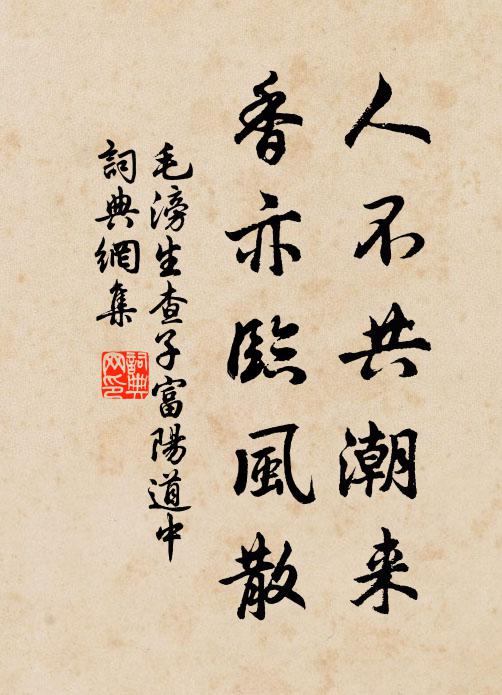 人不共潮来
香亦臨風散
毛滂生查子富陽道中
詞典網集
詞典网印